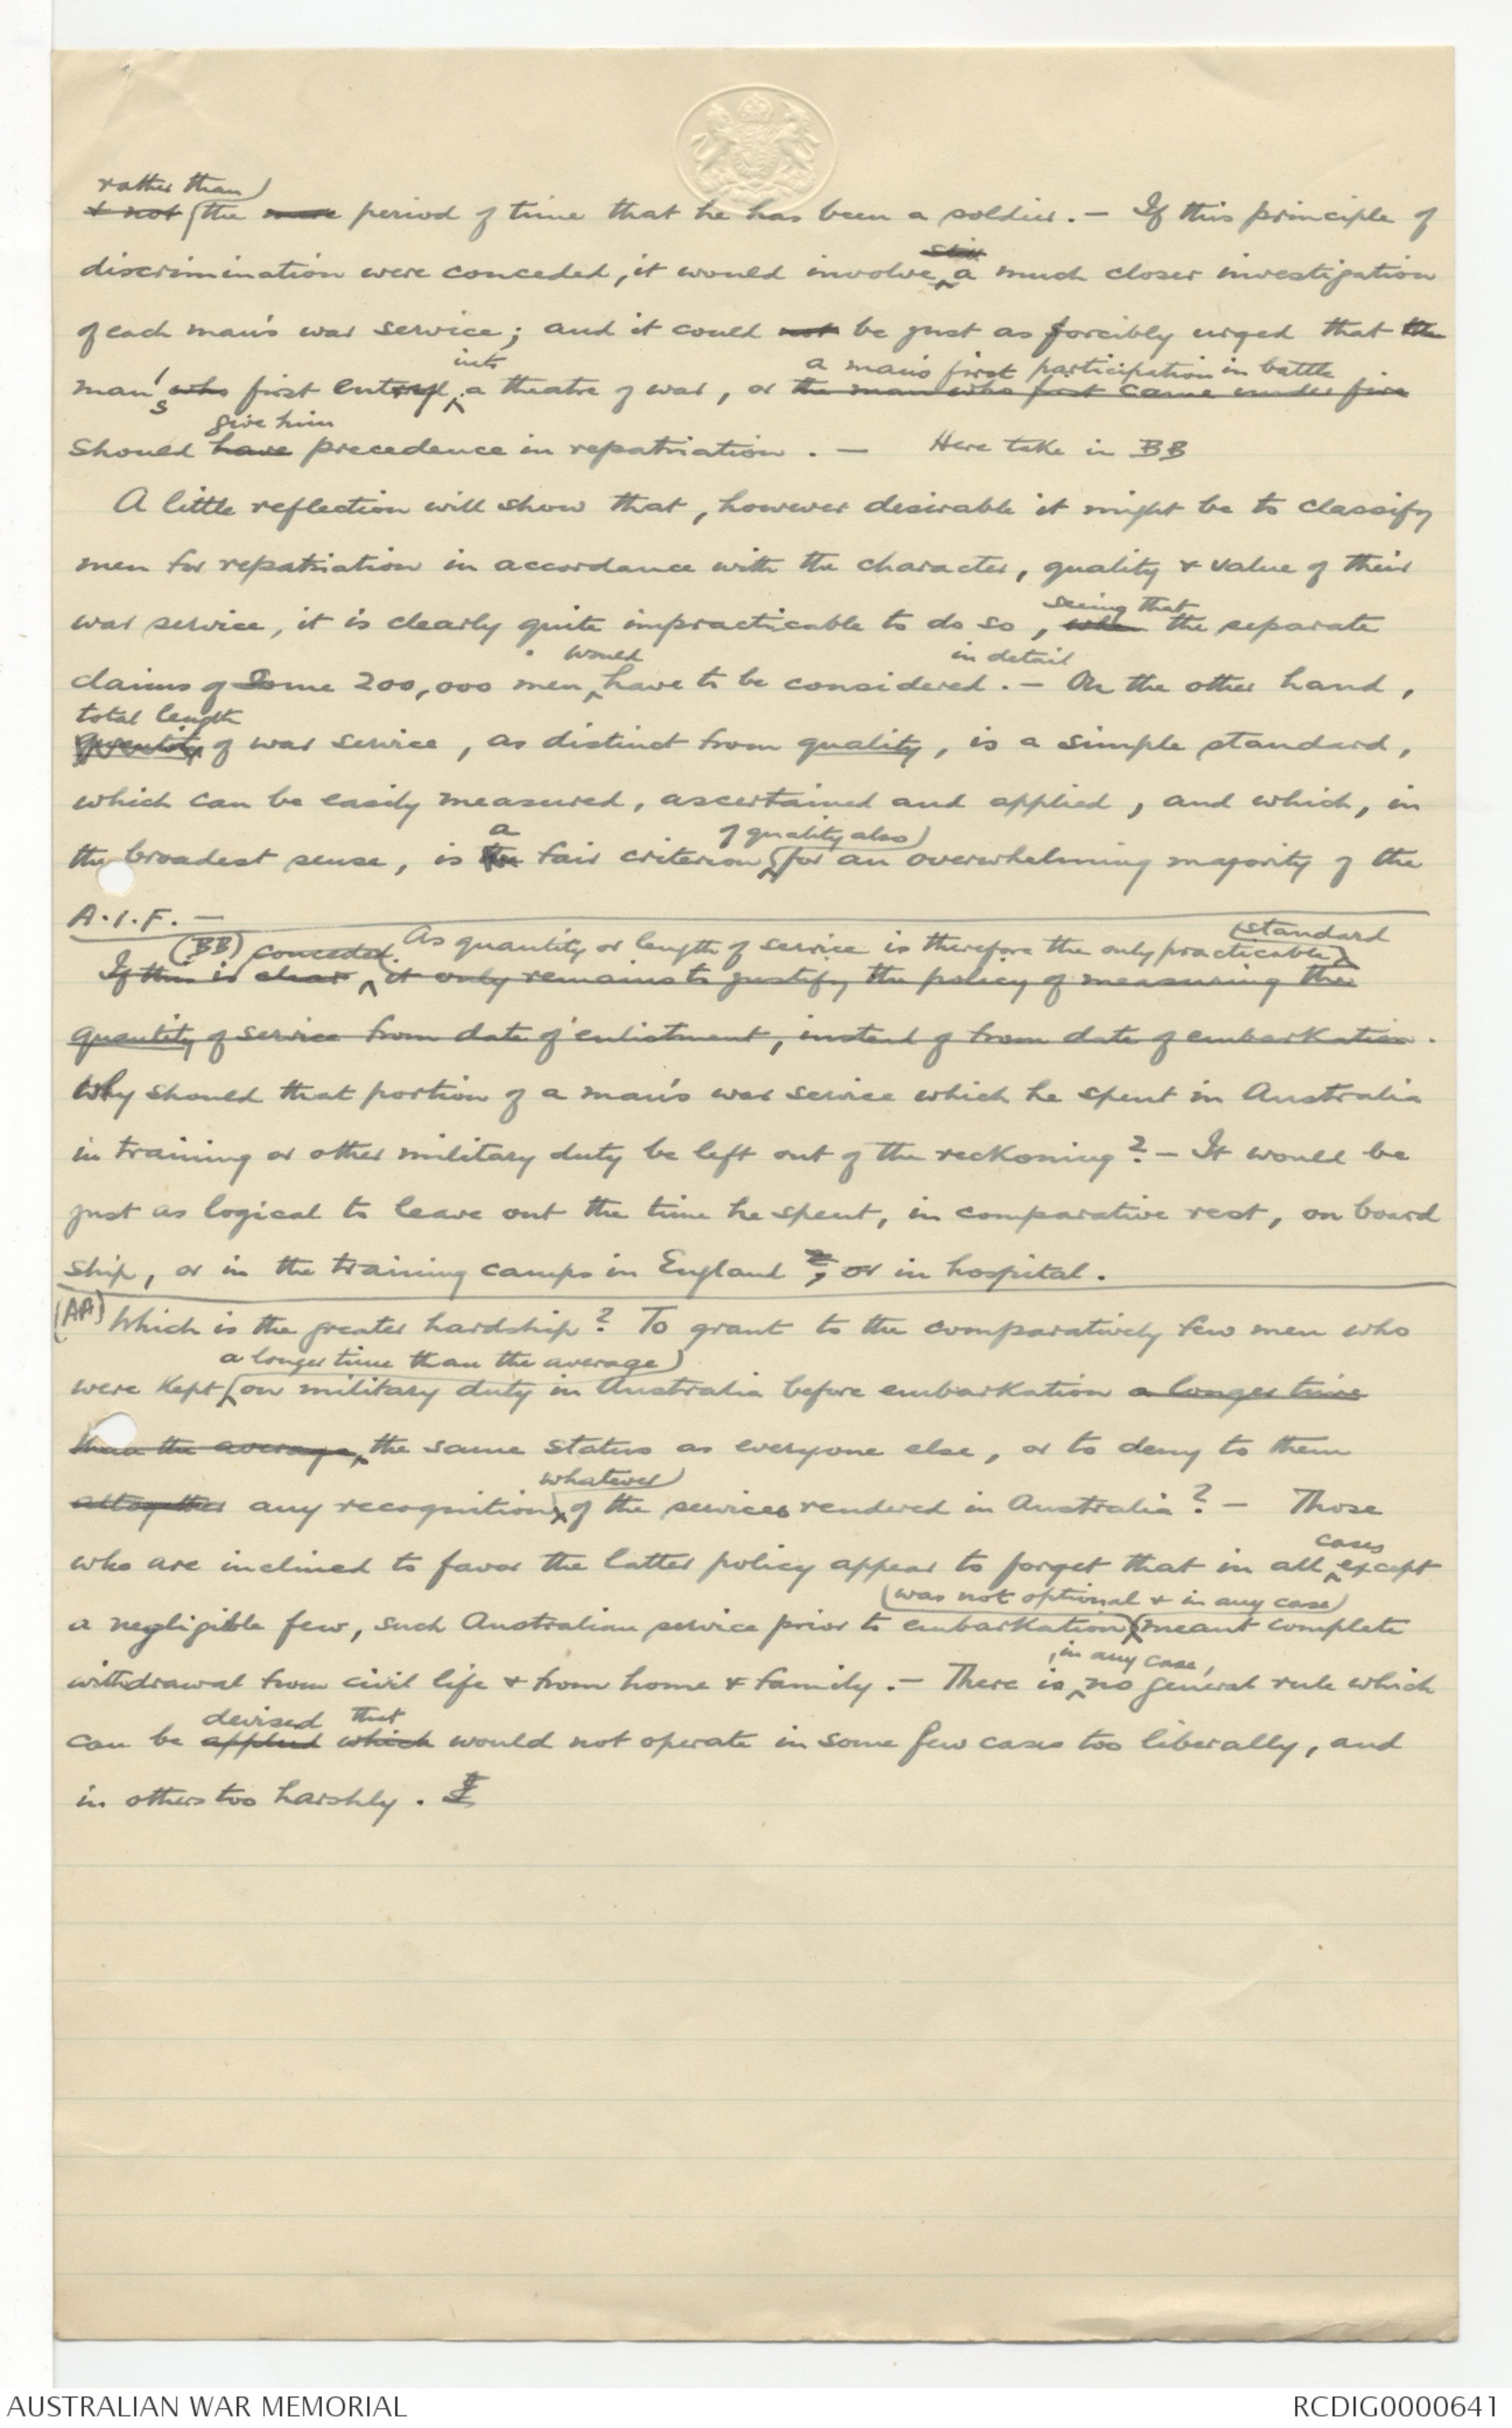 rather than
& not the mere period of time that he has been a soldier. — If this principle of
still
discrimination were conceded, it would involve a much closer investigation
of each man's war service; and it could not be just as forcibly urged that the
into a man's first participation in battle
man's who first entry a theatre of war, or the man who first came under fire
give him
should have precedence in repatriation. — Here take in BB
A little reflection will show that, however desirable it might be to classify
men for repatriation in accordance with the character, quality & value of their
seeing that
war service, it is clearly quite impracticable to do so, when the separate
would in detail
claims of some 200,000 men have to be considered. — On the other hand,
total length
quantity of war service, as distinct from quality, is a simple standard,
which can be easily measured, ascertained and applied, and which, in
a of quality also
the broadest sense, is the fair criterion for an overwhelming majority of the
A.I.F. —
(BB) conceded. As quantity or length of service is therefore the only practicable standard
If this is clear, it only remains to justify the policy of measuring the
quantity of service from date of enlistment, instead of from date of embarkation.
Why should that portion of a man's war service which he spent in Australia
in training or other military duty be left out of the reckoning? — It would be
just as logical to leave out the time he spent, in comparative rest, on board
ship, or in the training camps in England ?, or in hospital.
(AA) Which is the greater hardship? To grant to the comparatively few men who
a longer time than the average
were kept on military duty in Australia before embarkation a longer time
than the average, the same status as everyone else, or to deny to them
whatever
altogether any recognition of the services rendered in Australia? — Those
cases
who are inclined to favor the latter policy appear to forget that in all except
(was not optional & in any case)
a negligible few, such Australian service prior to embarkation meant complete
, in any case,
withdrawal from civil life & from home & family. — There is no general rule which
devised that
can be applied which would not operate in some few cases too liberally, and
in others too harshly.
AUSTRALIAN WAR MEMORIAL
RCDIG0000641